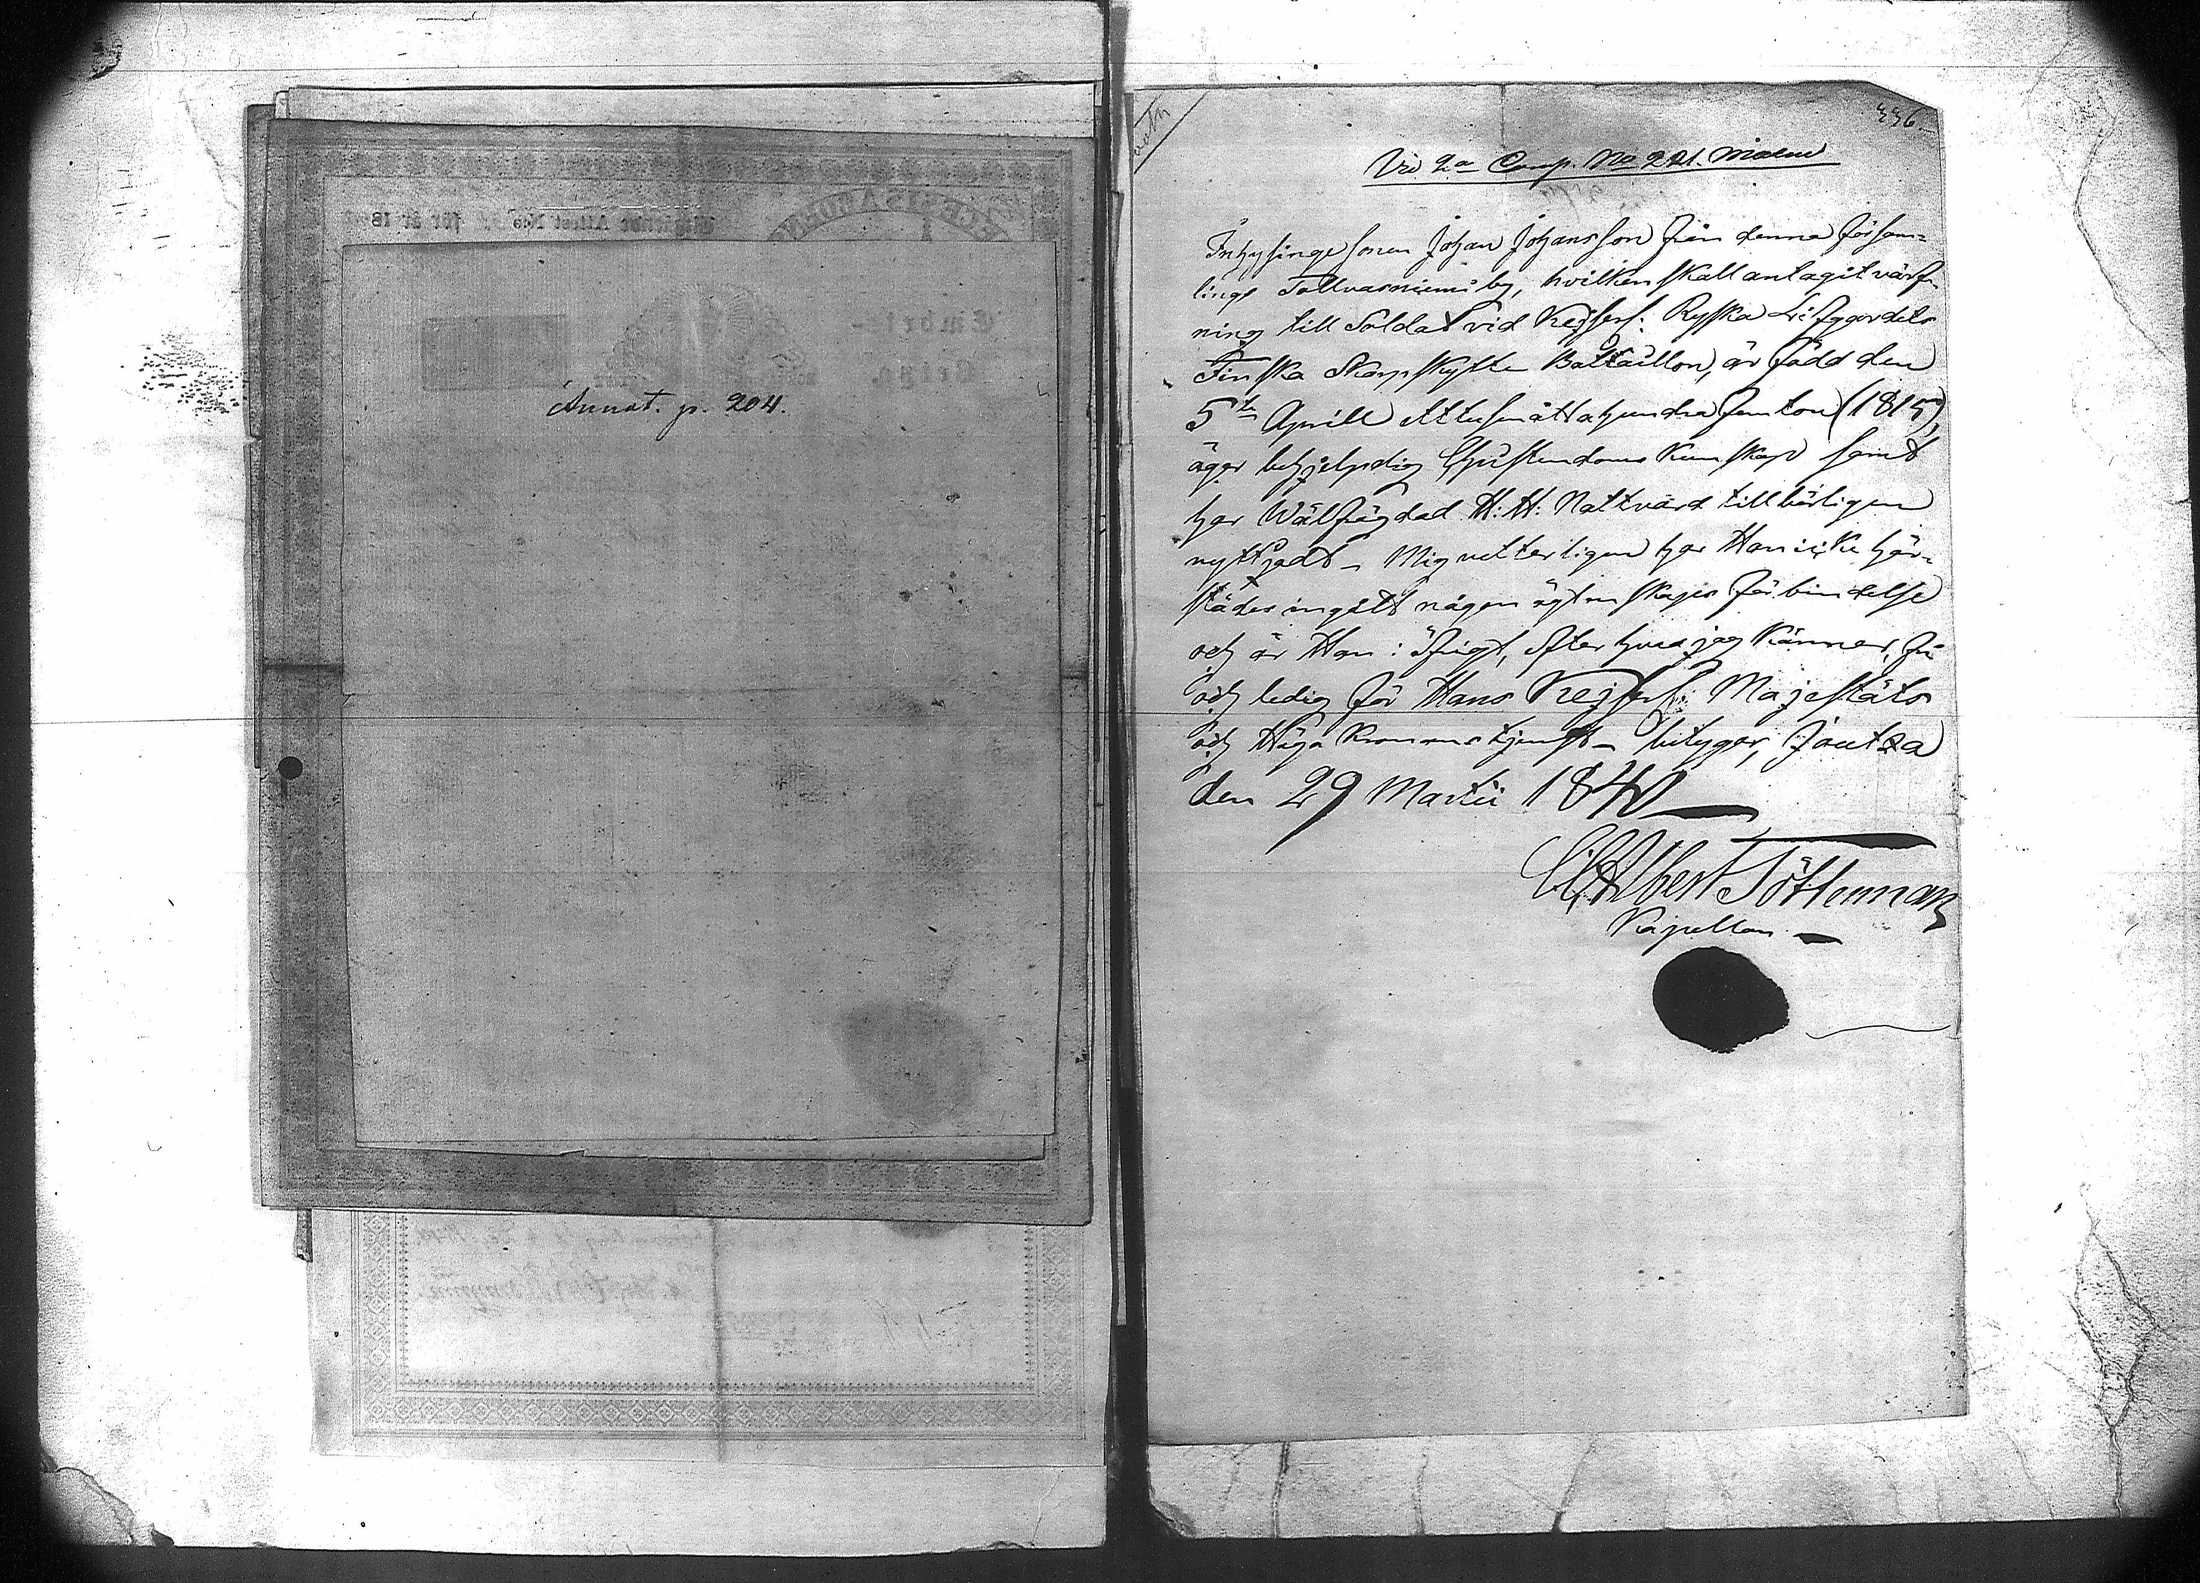 Annot. p. 204.
336.
Vid 2a Comp. No 221. Malm
Inhysinge Sonen Johan Johansson från denna Försam-
lings Tollvasniemi by, hvilken skall antagit värf-
ning till Soldat vid Kejserl: Ryska Lifgardets
Finska Skarpskytte Battaillon, är född den
5te Aprill Ettusenåttahundra femton (1815),
äger behjelpelig Christendoms Kunskap samt
har Wälfrägdad H: H: Nattvard tillbörligen
nyttjadt _ Mig vetterligen har Han icke här-
städes ingått någon ägtenskaps förbindelse
och är Han i öfrigt, efter hvad jag känner, fri
och ledig för Hans Kejserl: Majestäts
och Höga Kronans tjenst _ betygar, Joutza
den 29 Martii 1840
Albert Pöttenmark
Kapellan